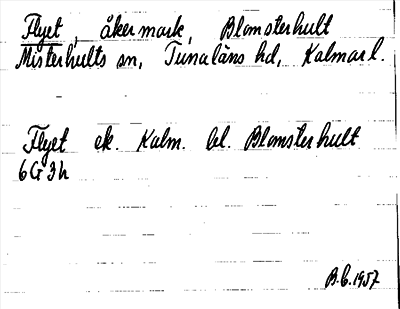 Flyet, åkermark, Blomsterhult
Misterhults sn, Tunaläns hd, Kalmar l.
Flyet ek. Kalm. bl. Blomsterhult
6G3h
B.C. 1957